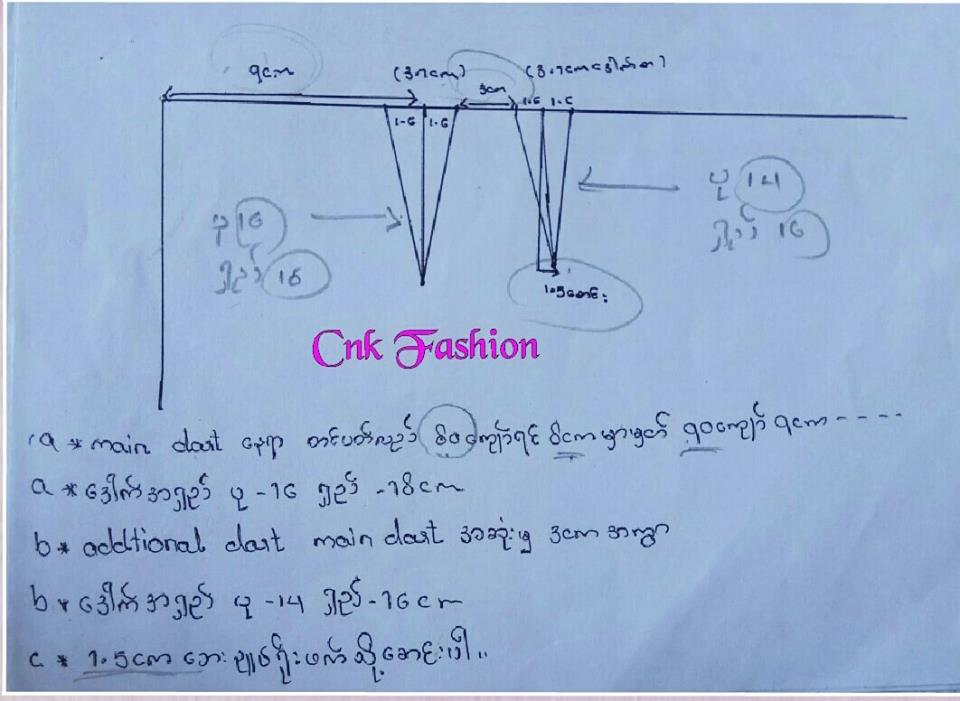 ၅cm
3cm
1.6 1.6
1.6 1.6
ပု 16
ရှည် 18
ပု 14
ရှည် 16
1.5စောင်း
Cnk Fashion
a * main dart နေရာ တင်ပတ်လည် ၆၀ကျော်ရင် ၆cm မှာမှတ် ၅၀ကျော် ၅cm ----
a * ဒေါက်အရှည် ပု -16 ရှည် -18cm
b * addtional dart main dart အဆုံးမှ 3cm အကွာ
b * ဒေါက်အရှည် ပု -14 ရှည်-16cm
c * 1.5cm ဘေးချုပ်ရိုးဖက်သို့စောင်းပါ..